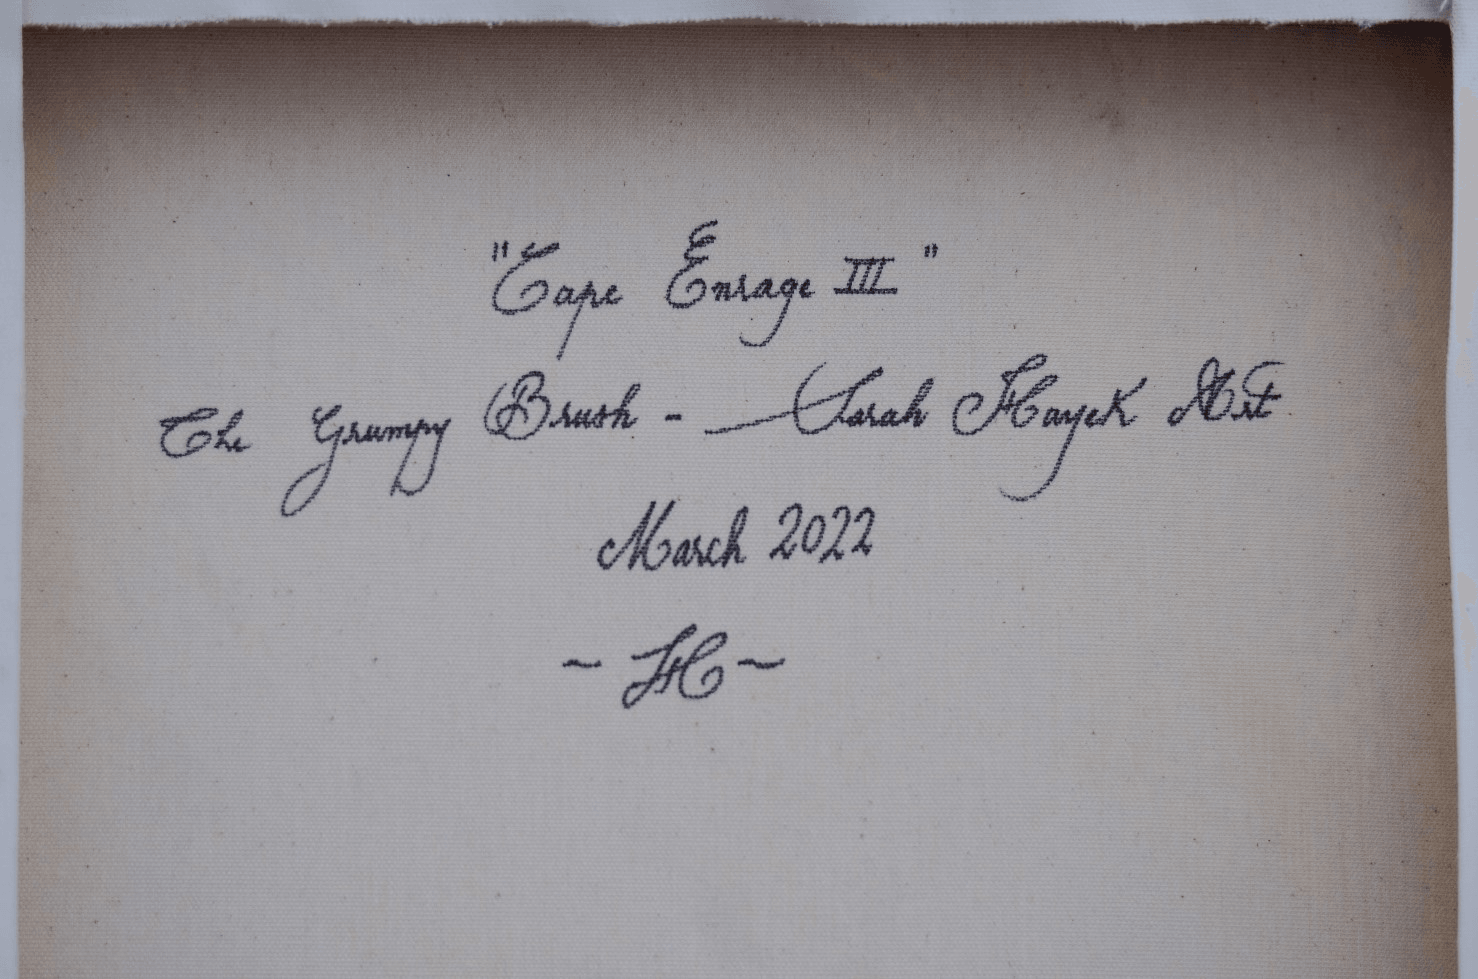 "Cape Enrage III"
The Grumpy Brush - Sarah Hayek Art
March 2022
~ SH ~